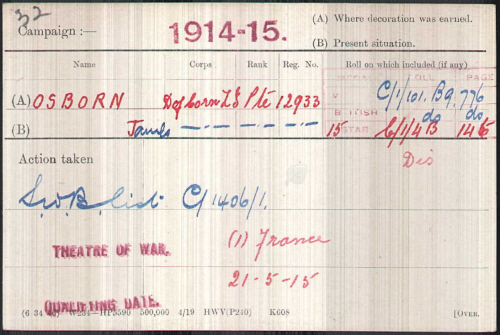 32
Campaign :— 1914-15.
(A) Where decoration was earned.
(B) Present situation.
Name Corps Rank Reg. No. Roll on which included (if any)
ROLL PAGE
(A) OSBORN D of Corn L I Pte 12933 C/1/101. B9. 776
(B) James — · — · — do do
BRITISH
15 STAR C/1/4 B 1456
Action taken Dis
S.W.B. List C/1406/1.
THEATRE OF WAR. (1) France
21-5-15
QUALIFYING DATE.
(6 34 46) W234—HP5590 500,000 4/19 HWV(P240) K608 [OVER.